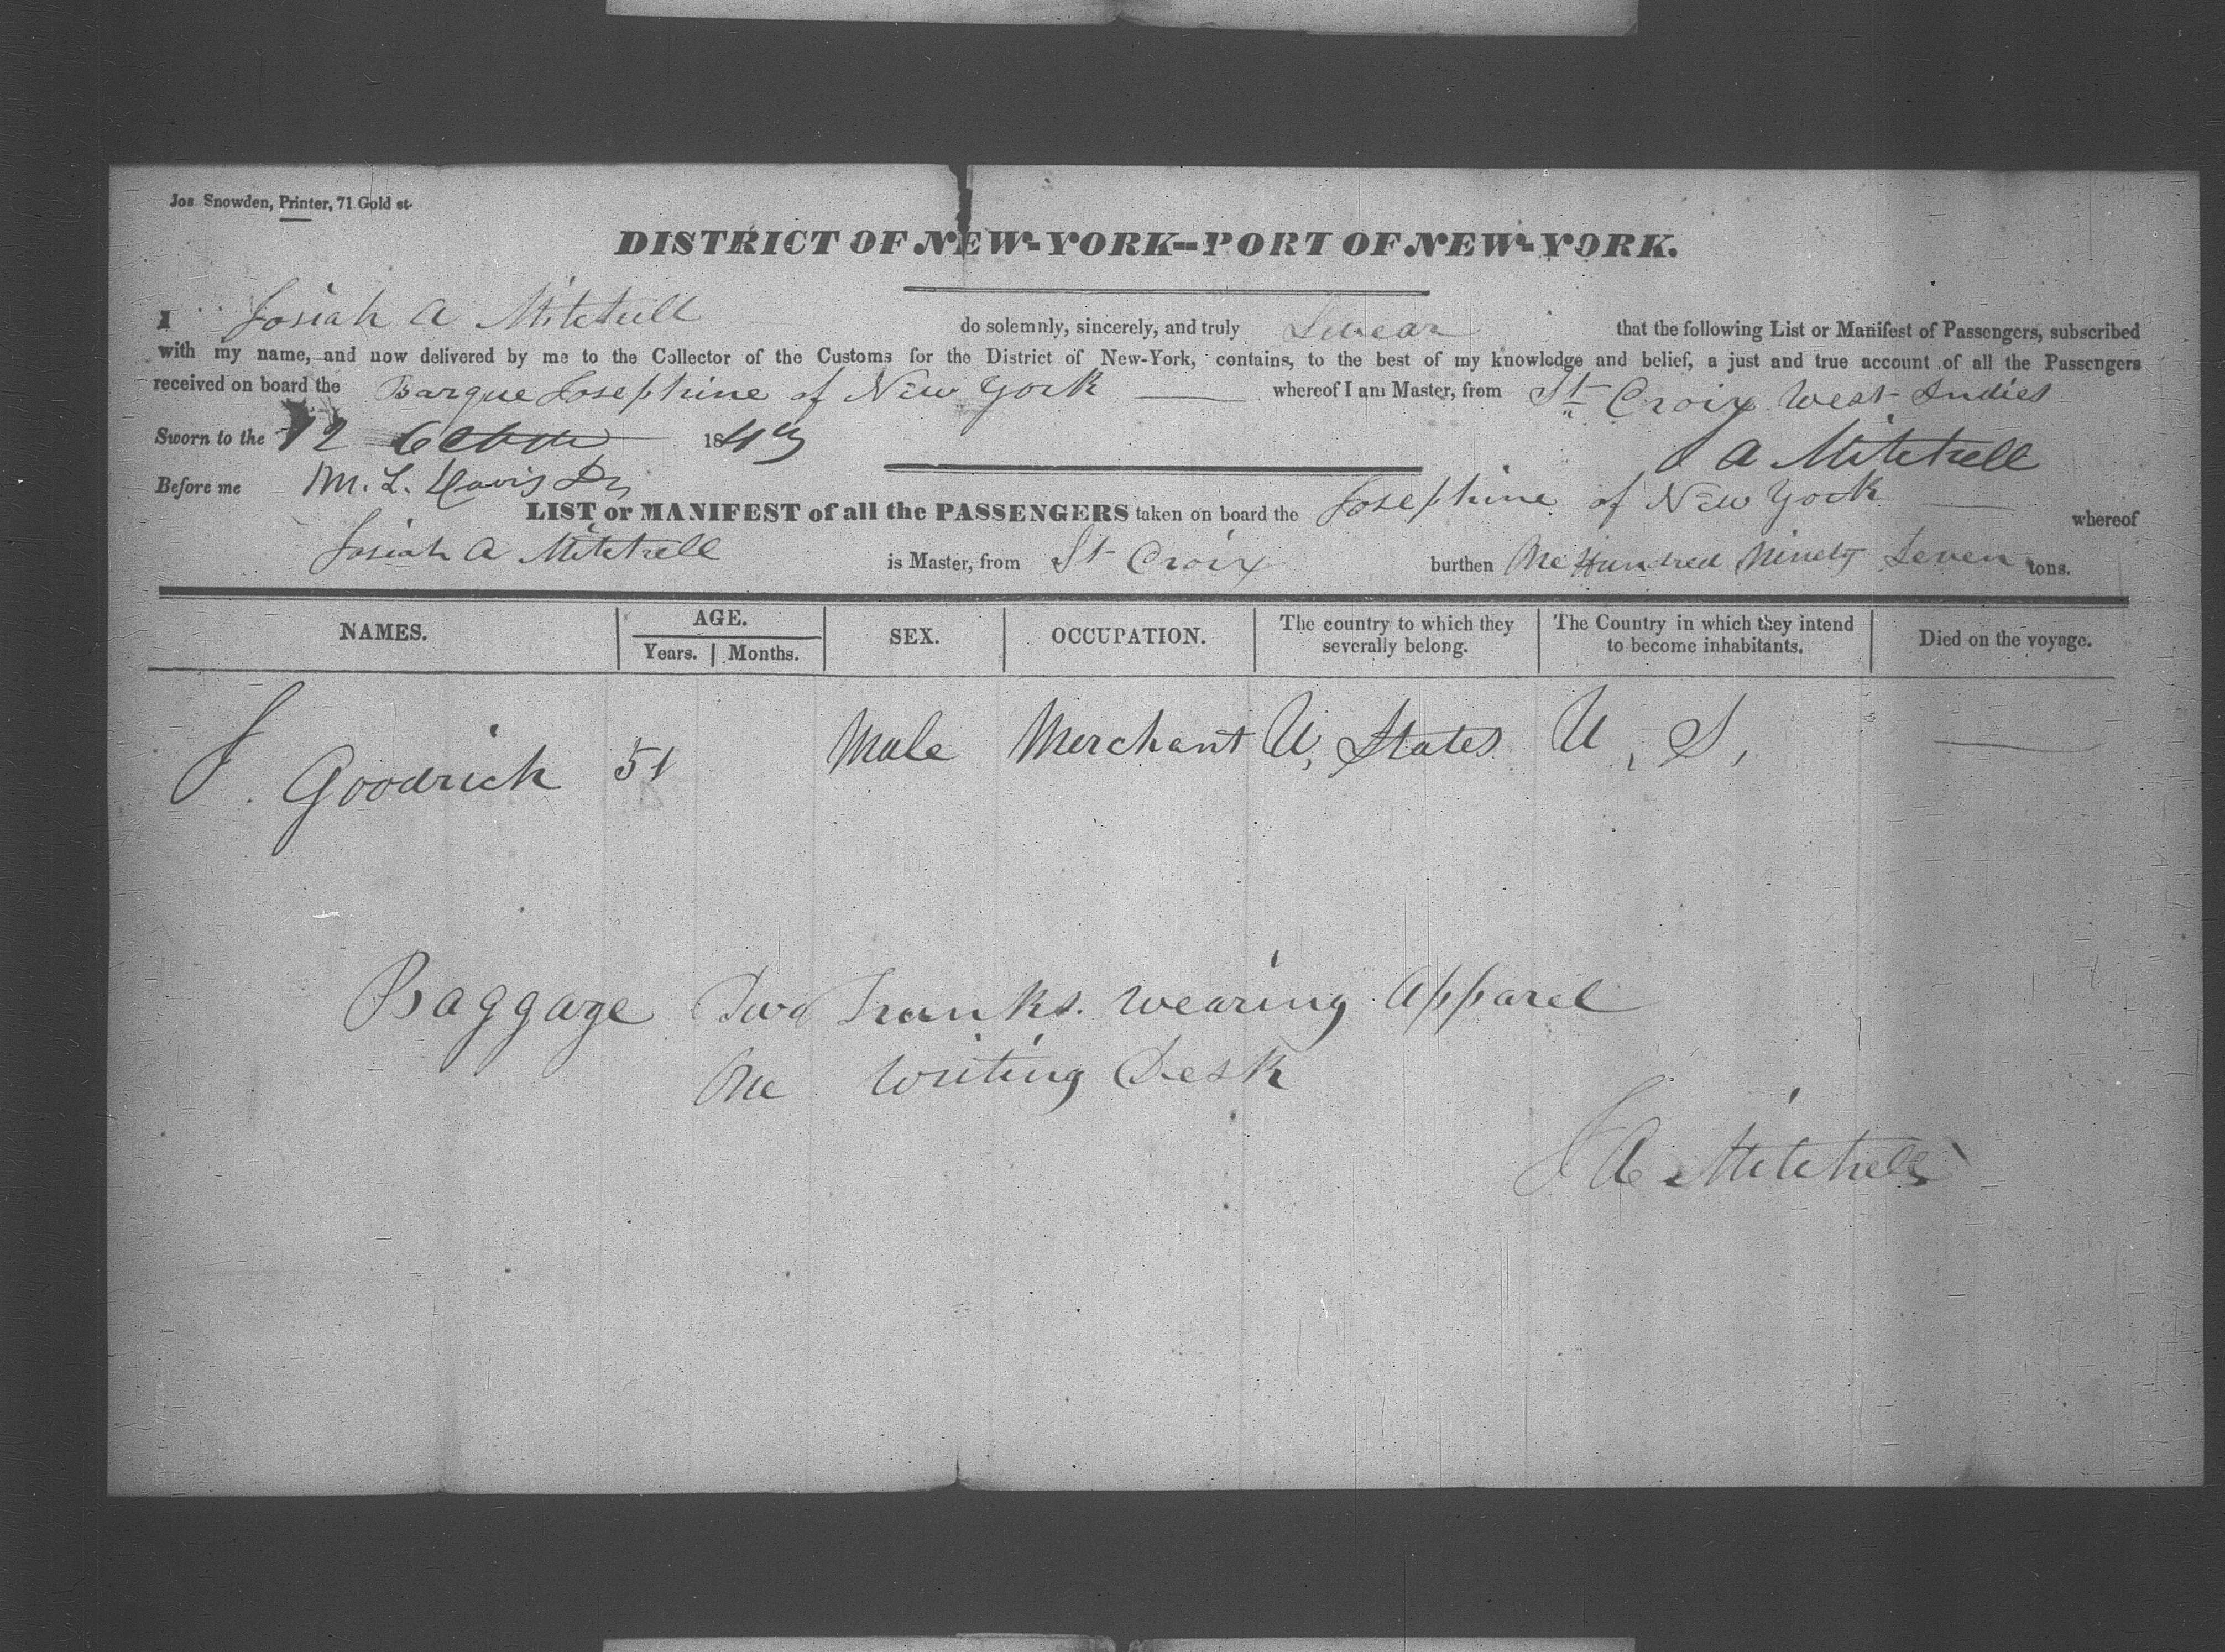 Jos Snowden, Printer, 71 Gold st.
DISTRICT OF NEW-YORK--PORT OF NEW-YORK.
I Josiah A Mitchell do solemnly, sincerely, and truly Swear that the following List or Manifest of Passengers, subscribed
with my name, and now delivered by me to the Collector of the Customs for the District of New-York, contains, to the best of my knowledge and belief, a just and true account of all the Passengers
received on board the Barque Josephine of New York whereof I am Master, from St Croix West Indies
Sworn to the 12 1843
J A Mitchell
Before me M. L. Davis
LIST or MANIFEST of all the PASSENGERS taken on board the Josephine of New York whereof
Josiah A Mitchell is Master, from St Croix burthen One Hundred Ninety Seven tons.
NAMES. AGE. Years. Months. SEX. OCCUPATION. The country to which they severally belong. The Country in which they intend to become inhabitants. Died on the voyage.
J. Goodrich 51 Male Merchant U, States U, S,
Baggage Two Trunks. Wearing Apparel
One Writing Desk
J A Mitchell